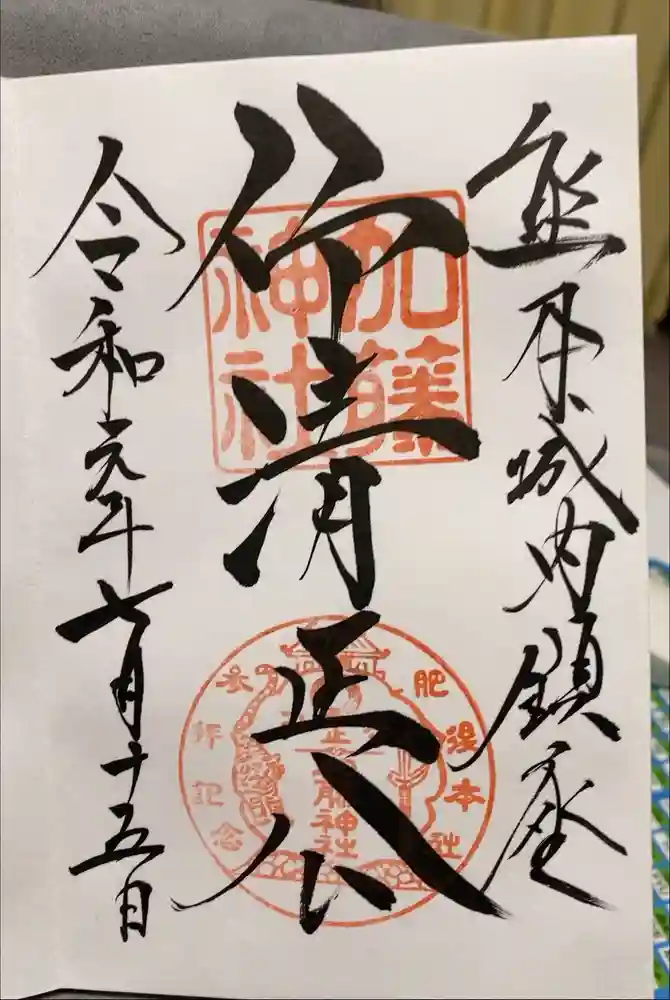 熊本城内鎮座
仰清正公
加藤
神社
肥後本社
参拝記念
清正公
加藤神社
令和元年七月十五日